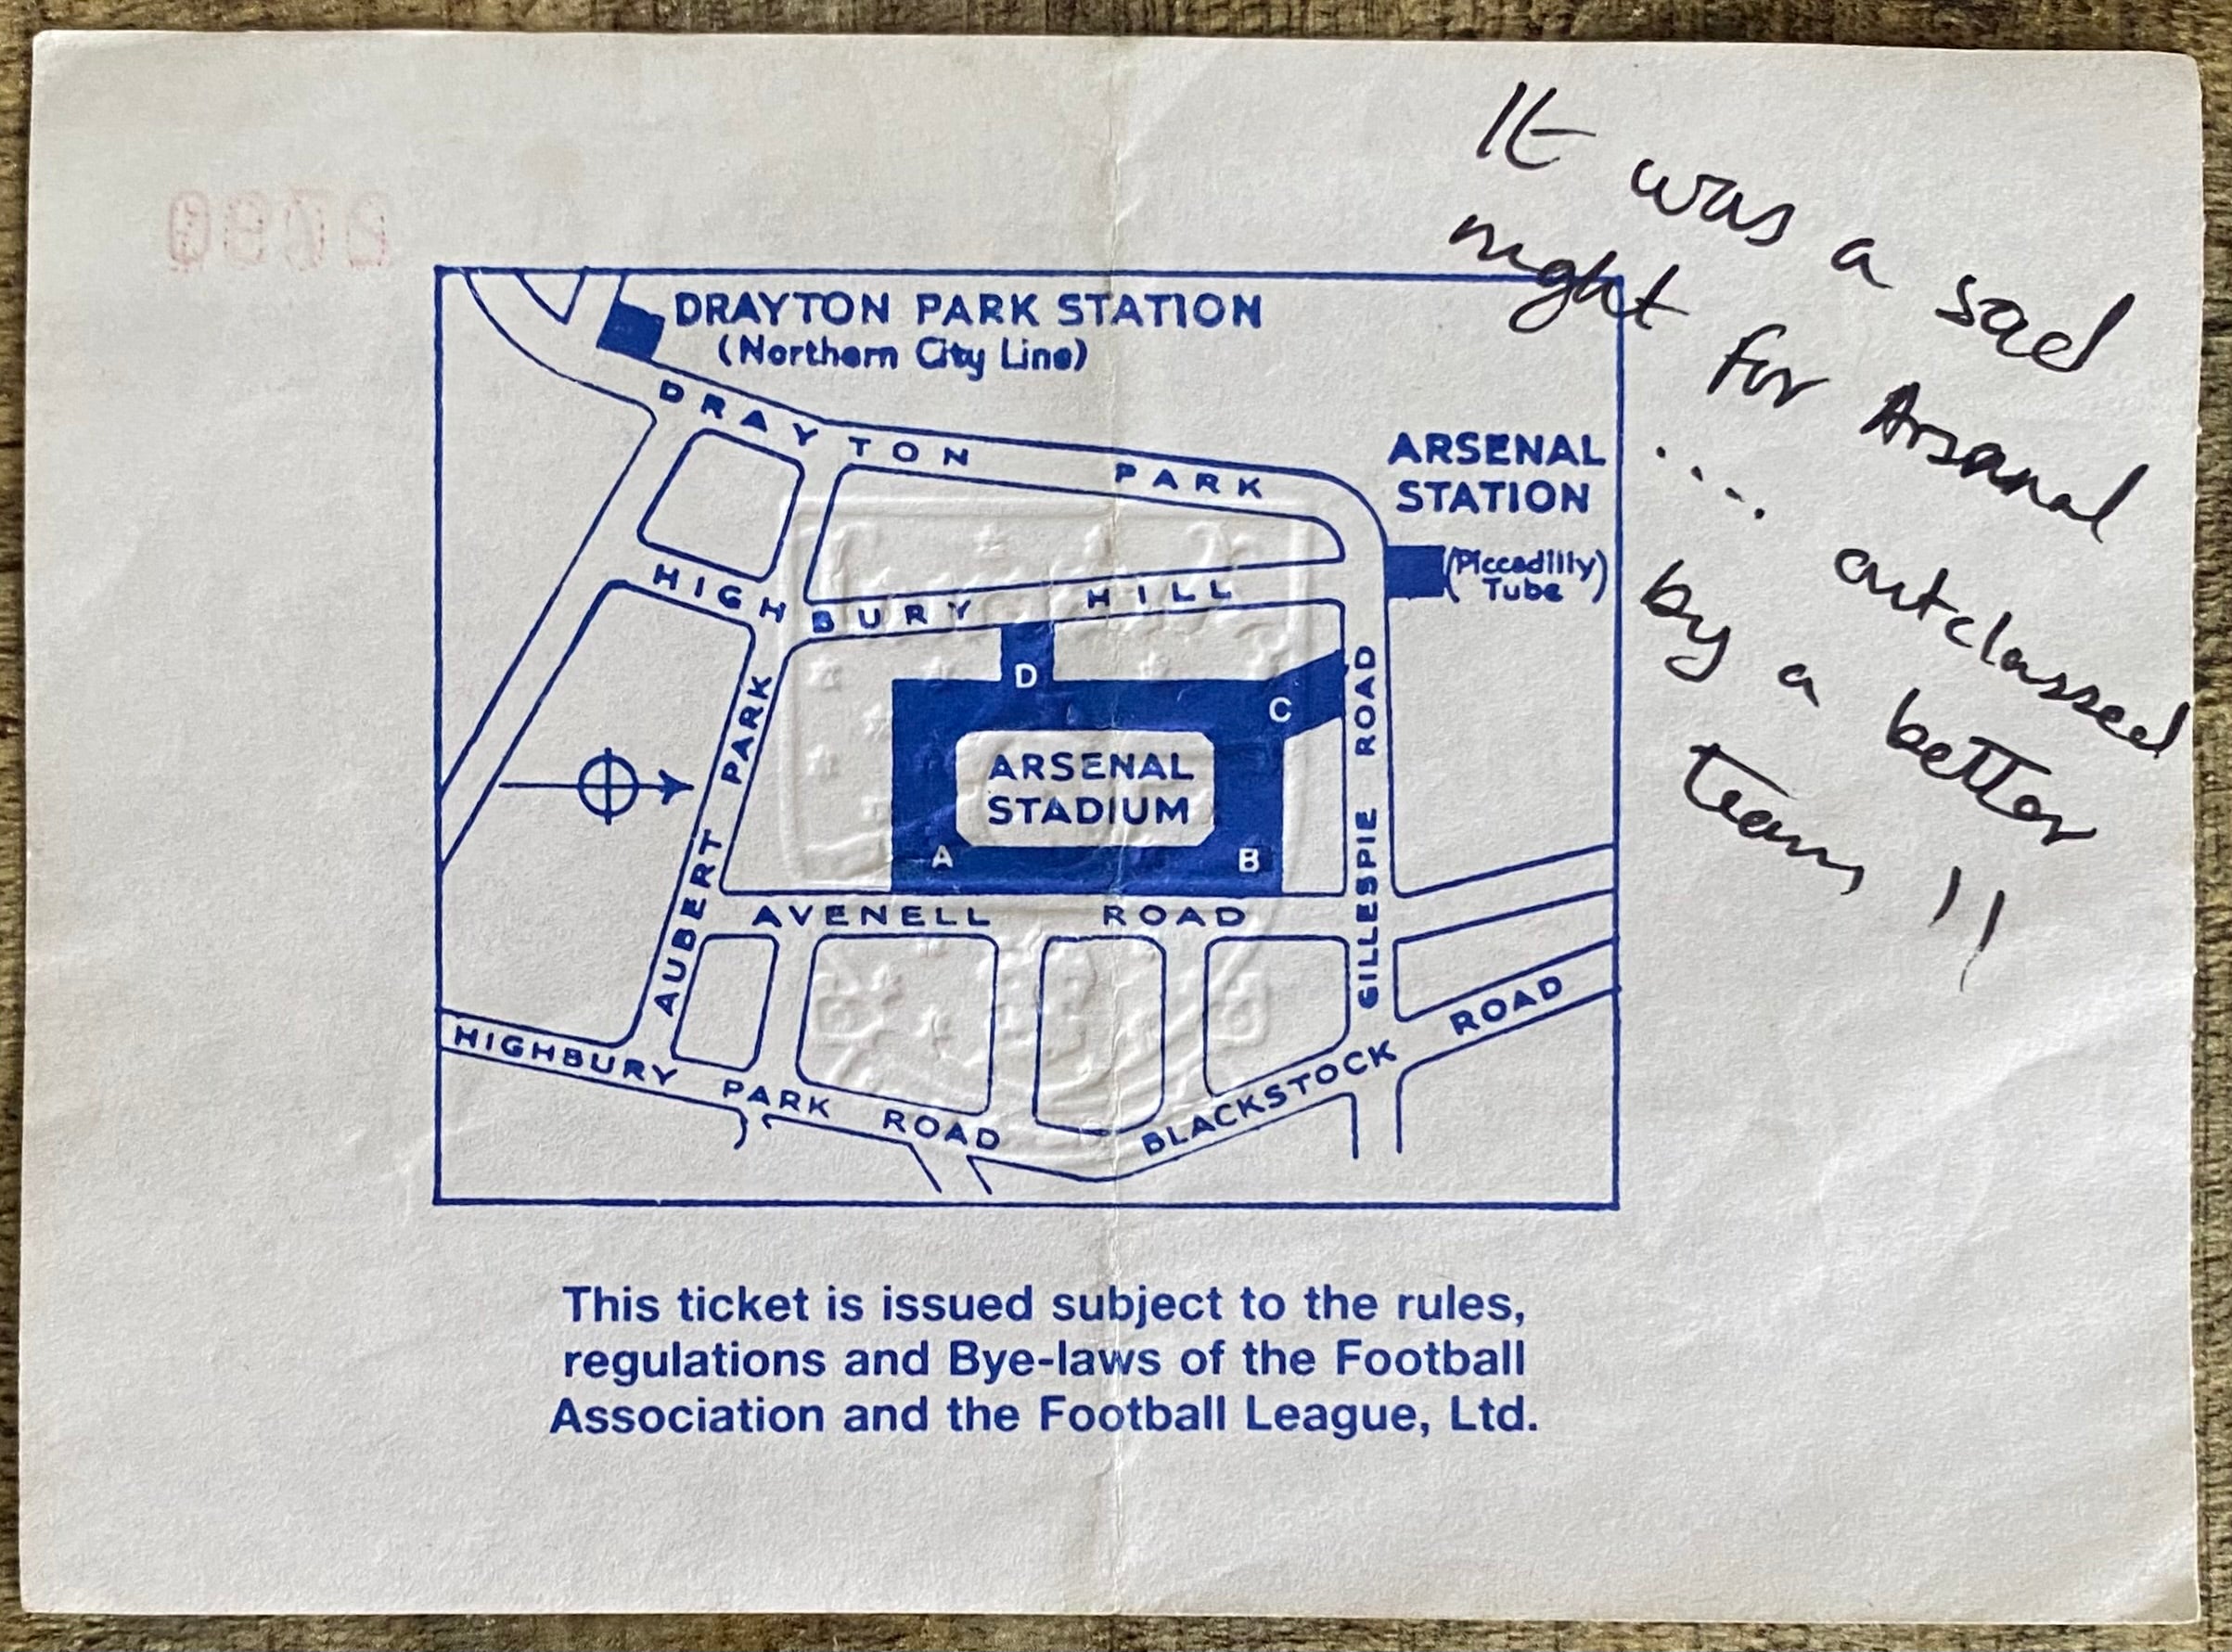 It was a sad
night for Arsenal
... outclassed
by a better
team !!
DRAYTON PARK STATION
(Northern City Line)
DRAYTON PARK
ARSENAL
STATION
(Piccadilly)
Tube
HIGHBURY HILL
D
C
ARSENAL
STADIUM
A
B
AUBERT PARK
GILLESPIE ROAD
AVENELL ROAD
HIGHBURY PARK ROAD
BLACKSTOCK ROAD
This ticket is issued subject to the rules,
regulations and Bye-laws of the Football
Association and the Football League, Ltd.